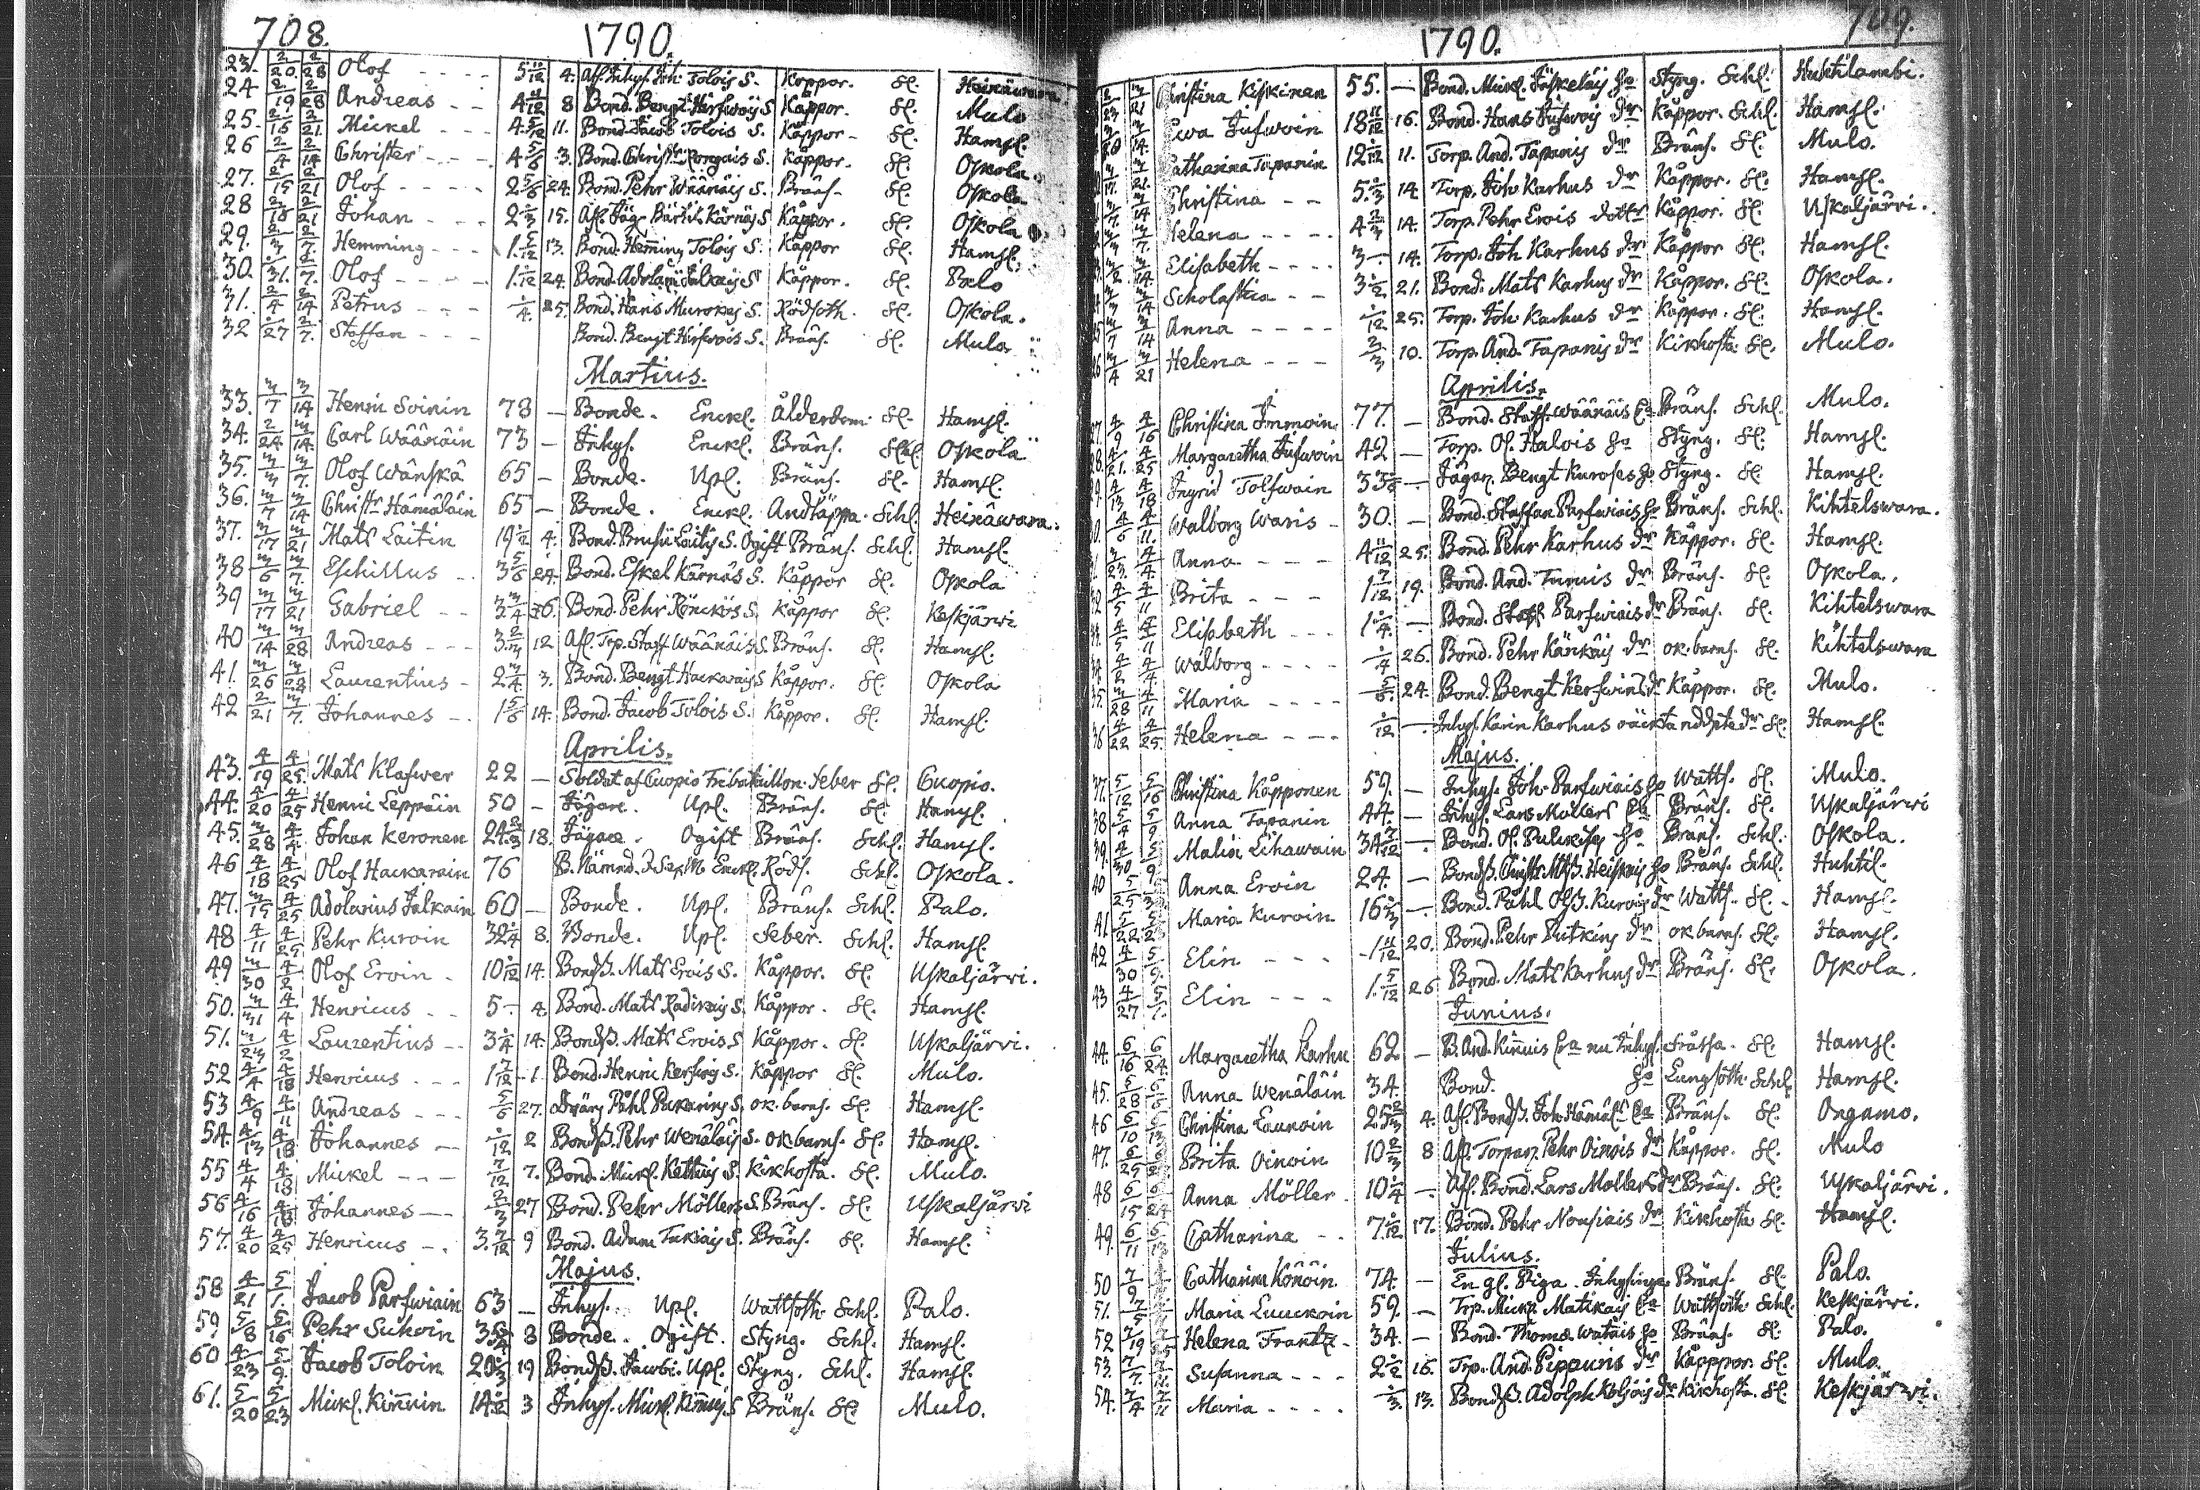 708. 1790.
23. 2/20 2/28 Olof - - - - 5 11/12 4. Afl. Inhys. Joh. Tolois S. Koppor. Sl. Heinäwara
24 2/19 2/28 Andreas - - 4 11/12 8 Bond. Bengt Hirfwois S Kåppor. Sl. Mulo
25. 2/15 2/21 Mickel - - - 4 5/12 11. Bond. Jacob Tolois S. Kåppor - Sl. Hamsl.
26 2/4 2/14 Christer - - - 4 5/6 3. Bond. Christ. S. Kåppor. Sl. Oskola.
27. 2/15 2/21 Olof - - - - 2 5/6 24. Bond. Pehr Wäänäis S. Bräns. Sl. Oskola
28 2/18 2/21 Johan - - - 2 2/3 15. Afl. Jäg. Bärtil Kärnäs S Kåppor. Sl. Oskola
29. 2/3 2/7. Hemming - - - 1. 5/12 13. Bond. Hem̄ing Tolois S. Kåppor Sl. Hamsl.
30. 1/31. 2/7. Olof - - - - 1. 1/12 24. Bond. Adolari Jalkais S Kåppor. Sl. Palo
31. 2/4 2/14 Petrus - - - 1/4. 25. Bond. Hans S. Rödsoth. Sl. Oskola.
32 1/27 2/7. Staffan - - - Bond. Bengt Hirfwois S. Bräns. Sl. Mulo.
Martius.
33. 3/7 3/14 Henric Soinin 78 - Bonde. Enckl. Ålderdom Sl. Hamsl.
34. 2/24 3/14. Carl Wäänäin 73 - Inhys. Enckl. Bräns. Schl. Oskola
35. 3/3 3/7. Olof Wänskä 65 - Bonde. Upl. Bräns. Sl. Hamsl.
36. 3/7 3/14 Christr Hämäläin 65 - Bonde. Enckl. Andtäppa. Schl. Heinäwara.
37. 3/17 3/21 Mats Laitin 19 1/2 4. Bond. Brusi Laitis S. Ogift Bräns. Schl. Hamsl.
38 3/6 3/7. Eschillus - 3 5/6 24. Bond. Eskel Kärnäs S. Kåppor Sl. Oskola
39 3/17 3/21 Gabriel - - 3 3/4 26. Bond. Pehr Rönckös S. Kåppor Sl. Keskjärwi
40 3/14 3/28 Andreas - - - 3. 2/3 12 Afl. Trp. Staff Wäänäis S. Bräns. Sl. Hamsl.
41. 3/26 3/28 Laurentius - 2 3/4. 3. Bond. Bengt Hackarais S Kåppor. Sl. Oskola
42 2/21 3/7. Johannes - . 1 5/6 14. Bond. Jacob Tolois S. Kåppor. Sl. Hamsl.
Aprilis.
43. 4/19 4/25. Mats Klafwer 22 - Soldat af Cuopio Fribataillon. feber Sl. Cuopio.
44. 4/20 4/25 Henric Leppäin 50 - Jägare. Upl. Bräns. Sl. Hamsl.
45. 3/28 4/4. Johan Keronen 24 2/3 18. Jägare. Ogift Bräns. Schl. Hamsl.
46 4/18 4/25 Olof Hackarain 76 B. Nämnd. Enckl. Röds. Schl. Oskola.
47. 3/15 4/25 Adolarius Jalkain 60 - Bonde. Upl. Bräns. Schl. Palo.
48 4/11 4/25 Pehr Kuroin 32 1/4 8. Bonde. Upl. feber. Schl. Hamsl.
49 3/30 4/2 Olof Eroin - 10 1/12 14. Bonds. Mats Erois S. Kåppor. Sl. Uskaljärvi.
50. 3/31 4/4 Henricus - - 5 - 4. Bond. Mats S. Kåppor. Sl. Hamsl.
51. 3/23 4/2 Laurentius - - 3 1/4 14. Bonds. Mats Erois S Kåppor. Sl. Uskaljärvi.
52 4/4 4/18 Henricus - - - 1 7/12 1. Bond. Henric Kerfwis S. Kåppor Sl. Mulo.
53 4/9 4/11 Andreas - - - 5/6 27. Dräng Påhl Packarins S. ok. barns. Sl. Hamsl.
54. 4/13 4/18 Johannes - 1/12 2 Bonds. Pehr Wenäläis S. ok. barns. Sl. Hamsl.
55 4/4 4/18 Mickel - - - 7/12 7. Bond. Mick. Kettuis S. Kikhosta. Sl. Mulo.
56 4/16 4/18 Johannes - - 2/3 27 Bond. Pehr Möllers S. Bräns. Sl. Uskaljärwi
57. 4/20 4/25 Henricus - . 3. 7/12 9 Bond. Adam Tukiais S. Bräns. Sl. Hamsl.
Majus.
58 4/21 5/1. Jacob Parfwiain 63 - Inhys. Upl. Wattsoth. Schl. Palo.
59 5/8 5/16 Pehr Suhoin 35 8 Bonde. Ogift. Styng. Schl. Hamsl.
60 4/23 5/9. Jacob Toloin 20 1/3 19 Bonds. Jacobi. Upl. Styng. Schl. Hamsl.
61. 5/20 5/23 Mickl. Kin̄uin 14 1/2 3 Inhys. Mickl. Kin̄uis S Bräns. Sl. Mulo.
1790. 709.
Christina Kiskinen 55. - Bond. Mickl. Jäskeläis ho Styng. Schl. Huhtilambi.
Ewa Jufwoin 18 11/12 16. Bond. Hans Jufwois dr Kåppor. Schl. Hamsl.
Catharina Tapanin 12 1/12 11. Torp. And. Tapanis dr Bräns. Sl. Mulo.
Christina - - 5. 2/3 14 Torp. Joh Karhus dr Kåppor. Sl. Hamsl.
Helena - - - - 4 2/3 14. Torp. Pehr Erois dottr Kåppor. Sl. Uskaljärvi.
Elisabeth - - - - 3 - 14. Torp. Joh Karhus dr Kåppor Sl. Hamsl.
Scholastica - - 3 1/2 21. Bond. Mats Karhus dr Kåppor. Sl. Oskola.
Anna - - - - 1/12 25. Torp. Joh Karhus dr Kåppor. Sl. Hamsl.
26 3/4 3/21 Helena - - - 2/3 10. Torp. And. Tapanis dr Kikhosta. Sl. Mulo.
Aprilis.
27. 4/9 4/16 Christina Immoin 77. - Bond. Staff. Wäänäis Ea Bräns. Schl. Mulo.
28. 4/21. 4/25 Margaretha Jufwoin 42 - Torp. Ol. Halois ho Styng. Sl. Hamsl.
29. 4/13 4/18 Ingrid Tolfwain 33 - Jägar. Bengt Kuroses ho Styng. Sl. Hamsl.
30. 4/6 4/11. Walborg Waris - 30. - Bond. Staffan Parfwiais ho Bräns. Schl. Kihtelswara.
Anna - - - 4 11/12 25. Bond. Pehr Karhus dr Kåppor. Sl. Hamsl.
32 4/5 4/11 Brita - - - 1 7/12 19. Bond. And. Turuis dr Bräns. Sl. Oskola.
33. 4/5 4/11 Elisabeth - - - 1 1/4. - Bond. Staff. Parfwiais dr Bräns. Sl. Kihtelswara
34. 4/2 4/4 Walborg - - - - 1/4 26. Bond. Pehr Känkäis dr ok. barns. Sl. Kihtelswara
35. 3/28 4/11 Maria - - - - 5/6. 24. Bond. Bengt Kerfwins dr Kåppor. Sl. Mulo.
36 4/22 4/25. Helena - - - 1/12 - Inhys. Karin Karhus oäckta dr Sl. Hamsl.
Majus.
37. 5/12 5/16 Christina Kåpponen 59. - Inhys. Joh. Parfwiais ho Watts. Sl. Mulo.
38 5/4 5/9 Anna Tapanin 44. - Inhys. Lars Mollers Ea Bräns. Sl. Uskaljärvi
39. 4/30 5/9 Malin Lihawain 34 7/12 - Bond. Ol. ho Bräns. Schl. Oskola.
40 Anna Eroin 24. - Bonds. Christ. Heiskais ho Bräns. Schl. Huhtil.
41 Maria Kuroin 16 2/3 - Bond. Påhl Kurois dr Watts. Sl. Hamsl.
42 4/30 5/9. Elin - - - 1 11/12 20. Bond. Pehr Putkins dr ok barns. Sl. Hamsl.
43 4/27 Elin - - - 1. 5/12 26 Bond. Mats Karhus dr Bräns. Sl. Oskola.
Junius.
44. 6/16 6/24. Margaretha Karhu 62 - B. And. Kin̄uis Ea nu Inhys. Fråssa. Sl. Hamsl.
45. 5/28 Anna Wenäläin 34. Bond. ho Lungsoth. Schl. Hamsl.
46 6/10 6/13 Christina Lauroin 25 2/3 4. Afl. Bonds. Joh. Hämäls Ea Bräns. Sl. Ongamo.
47. Brita Oinoin 10 2/3 8 Afl. Torpar. Pehr Oinois dr Kåppor. Sl. Mulo
48 6/15 6/24 Anna Möller. 10 1/4 - Afl. Bond. Lars Mollers dr Bräns. Sl. Uskaljärvi.
49. 6/11 Catharina - - 7. 1/12 17. Bond. Pehr Nousiais dr Kikhosta Sl. Hamsl.
Julius.
50 7/9 Catharina Könöin 74. - En gl. Piga. Inhysinge Bräns. Sl. Palo.
51. 7/5 Maria Luuckoin 59. - Trp. Mick. Matikais Ea Wattsoth. Schl. Keskjärvi.
52 7/19 Helena Frantz - 34. - Bond. Thomæ Watais ho Bräns. Sl. Palo.
53. 7/7. Susanna - - - 2 1/2 16. Trp. And. Pippuris dr Kåpppor. Sl. Mulo.
54. 7/4 7/11 Maria - - - - 1/3. 13. Bonds. Adolph Koljois dr Kikhosta. Sl Keskjärwi.